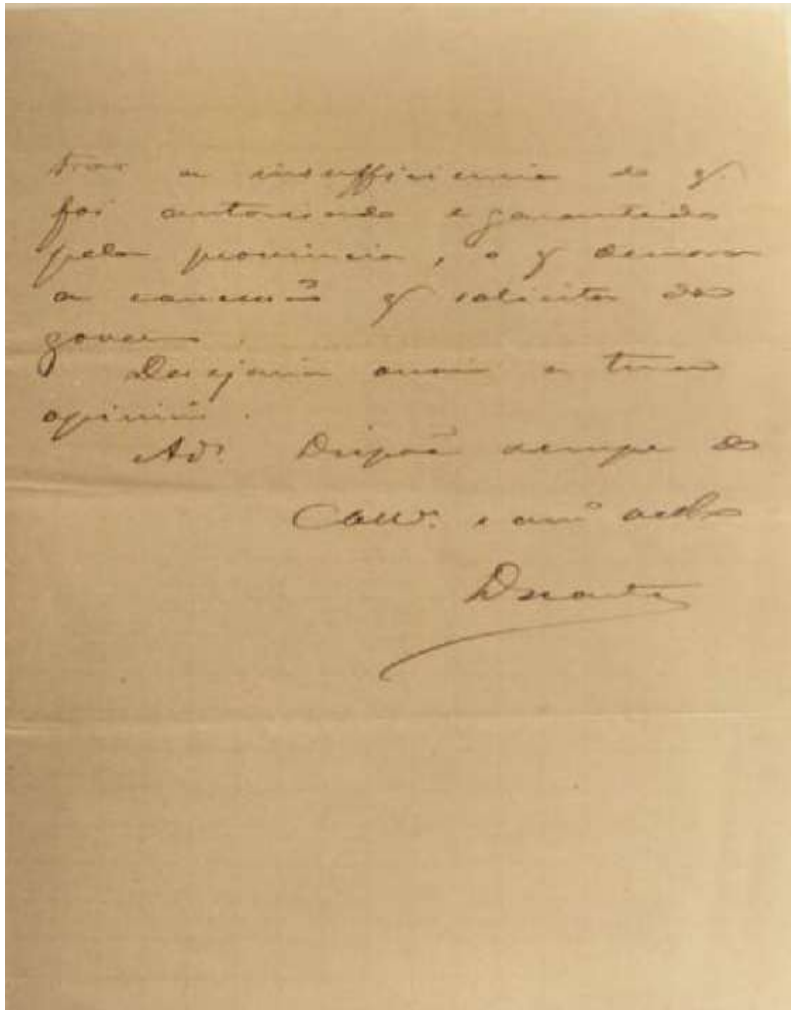 trar a insufficiencia do q.
foi autorisado e garantido
pela provincia, o q demora
a concessão q solicita do
governo.
Desejaria ouvir a tua
opinião.
Ad.s Dispõe sempre do
Coll.a e am.o
Duarte